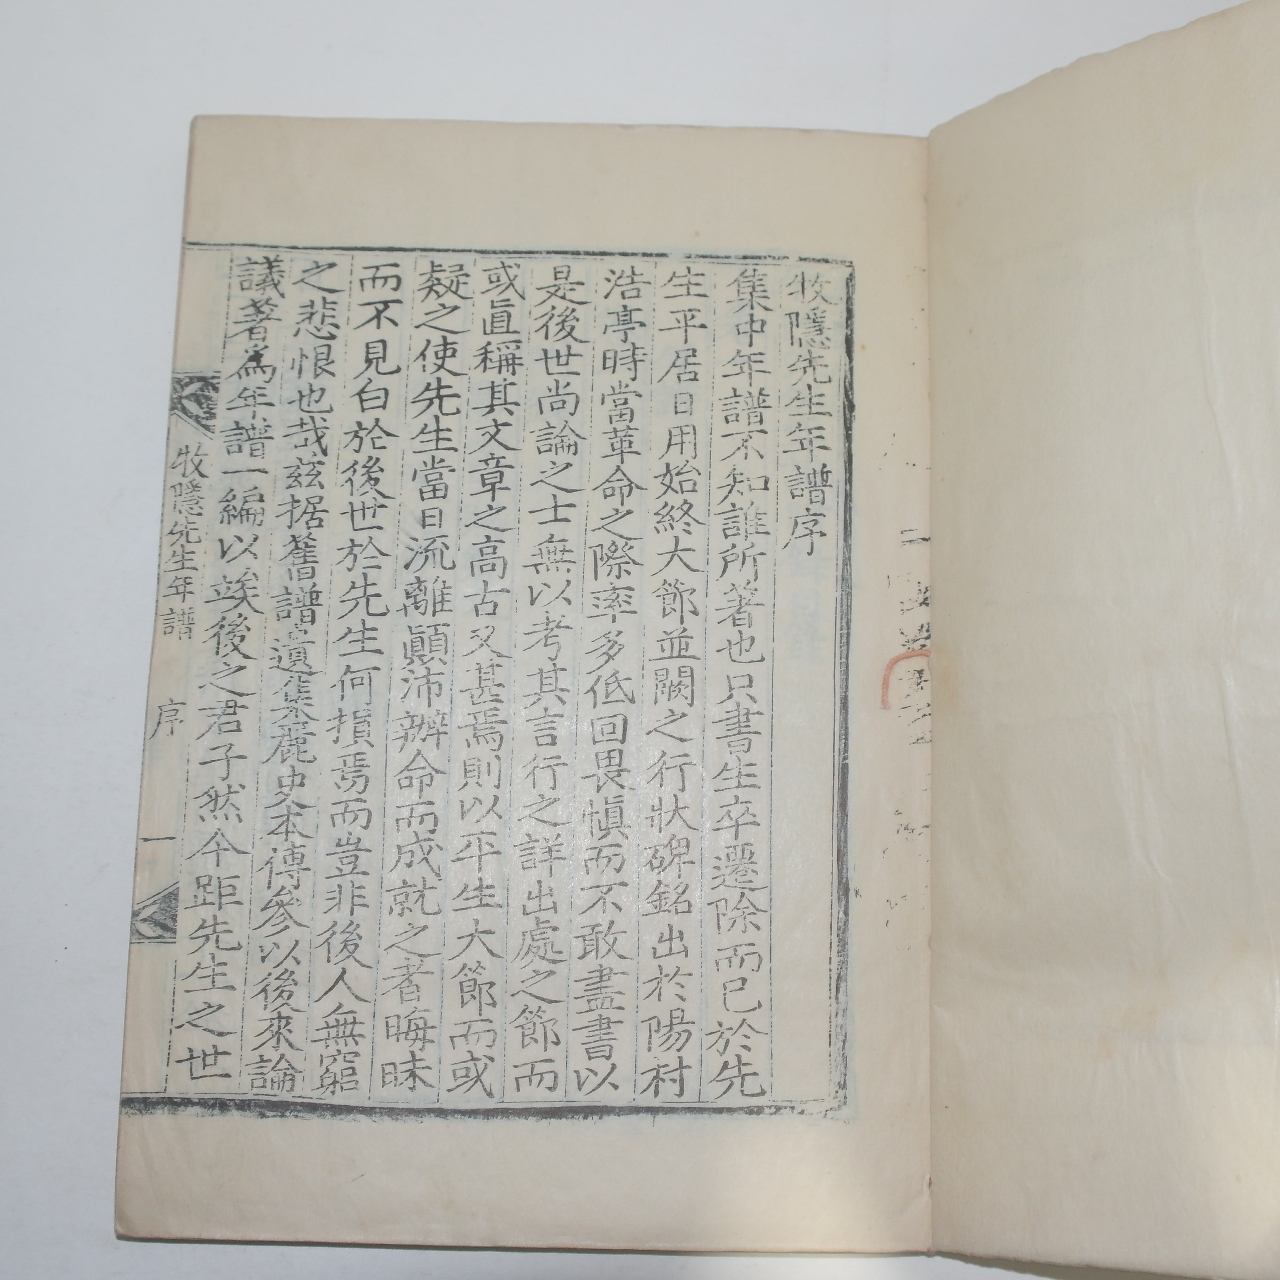 牧隱先生年譜序
集中年譜不知誰所著也只書生卒遷除而已於先
生平居日用始終大節並闕之行狀碑銘出於陽村
浩亭時當革命之際率多低回畏愼而不敢盡書以
是後世尚論之士無以考其言行之詳出處之節而
或眞稱其文章之高古又甚焉則以平生大節而或
疑之使先生當日流離顚沛辦命而成就之者晦昧
而不見白於後世於先生何損焉而豈非後人無窮
之悲恨也哉玆据舊譜遺集麗史本傳參以後來論
議著爲年譜一編以竢後之君子然今距先生之世
牧隱先生年譜 序 一